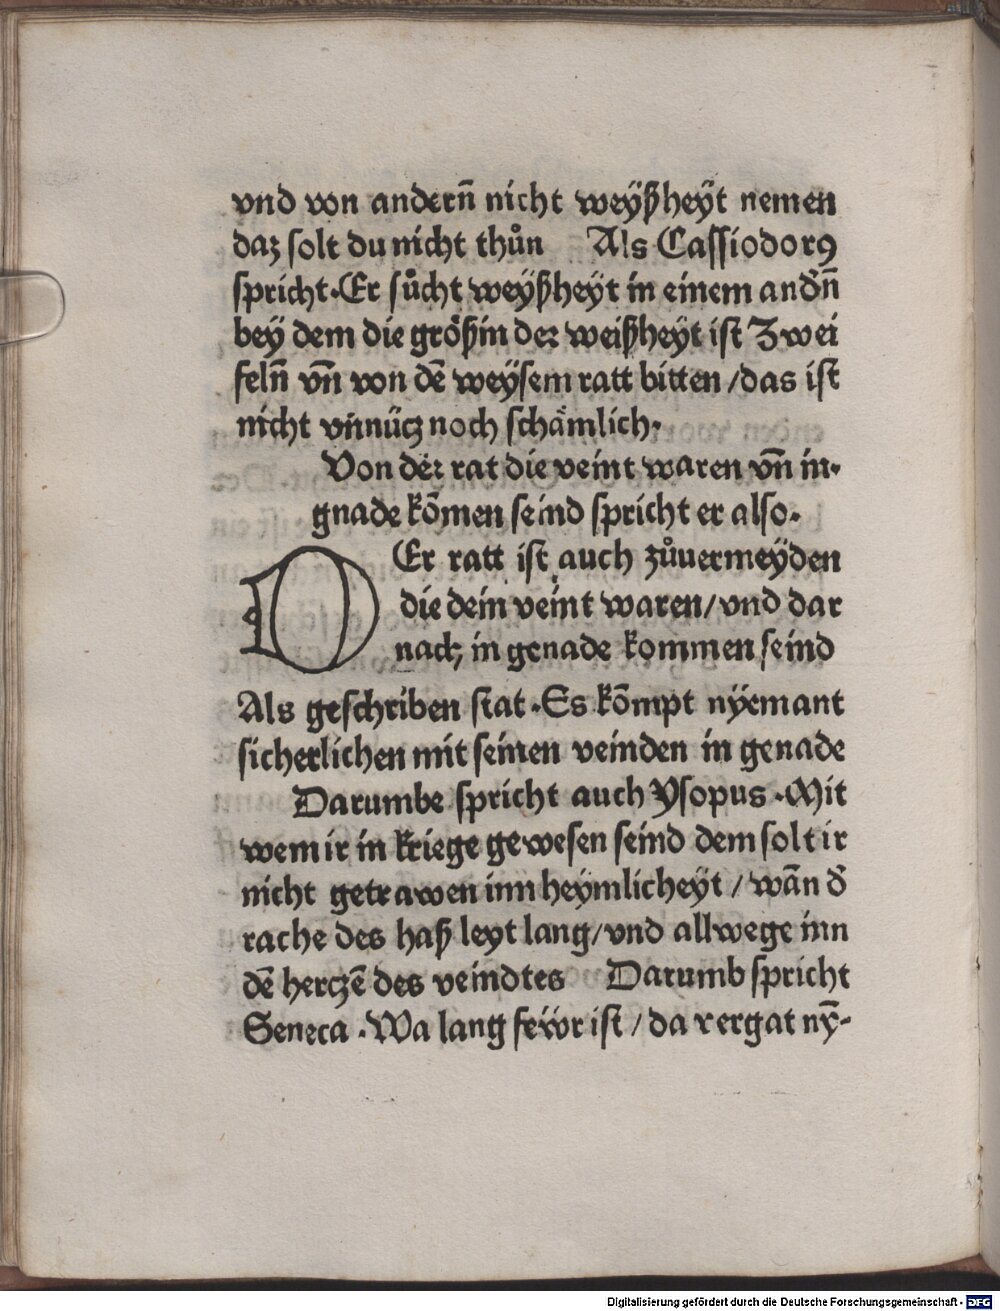 vnd von andern̄ nicht weyßheÿt nemen
daz solt du nicht thůn Als Cassiodorꝯ
spricht·Er sůcht weyßheÿt in einem andn̄
beÿ dem die größin der weißheÿt ist Zwei
feln̄ vn̄ von dē weÿsem ratt bitten/das ist
nicht vnnücz noch schämlich·
Von der rat die veint waren vn̄ in·
gnade kōmen seind spricht er also·
DEr ratt ist auch zůuermeÿden
die dein veint waren/vnd dar
nach in genade kommen seind
Als geschriben stat·Es kōmpt nÿemant
sicherlichen mit seinen veinden in genade
Darumbe spricht auch Ysopus·Mit
wem ir in kriege gewesen seind dem solt ir
nicht getrawen inn heÿmlicheÿt/wān d̕
rache des haß leyt lang/vnd allwege inn
dē herczē des veindtes Darumb spricht
Seneca·Wa lang feẅr ist/da vergat nȳ-
Digitalisierung gefördert durch die Deutsche Forschungsgemeinschaft - DFG